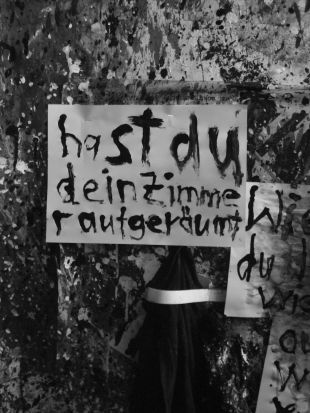 hast du
dein Zimme
r aufgeräumt
Wie
du